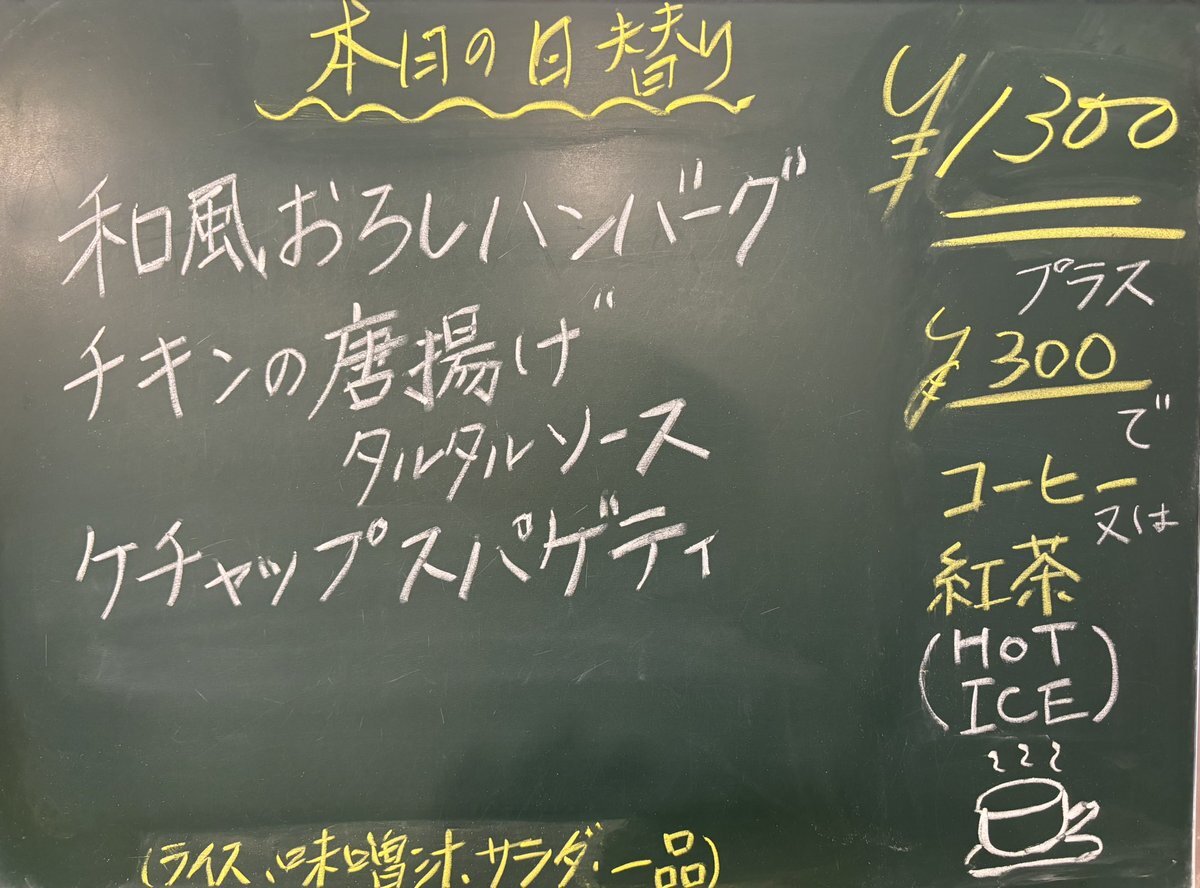 本日の日替り
和風おろしハンバーグ
チキンの唐揚げ
タルタルソース
ケチャップスパゲティ
(ライス、味噌汁、サラダ、一品)
¥1300
プラス
¥300
で
コーヒー
又は
紅茶
(HOT
ICE)